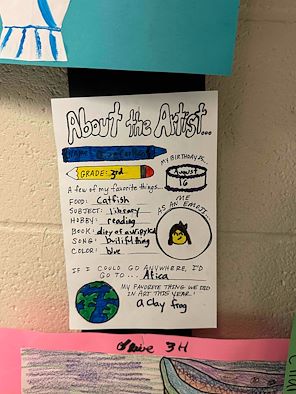 About the Artist...
NAME:
GRADE: 3rd
MY BIRTHDAY IS...
August
16
A few of my favorite things...
FOOD: Catfish
SUBJECT: library
HOBBY: reading
BOOK: diry of a
SONG:
COLOR: blue
ME
AS AN EMOJI
IF I COULD GO ANYWHERE, I'D
GO TO... Africa
MY FAVORITE THING WE DID
IN ART THIS YEAR!
a clay frog
3H